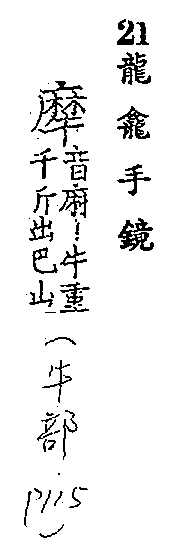 21龍龕手鏡
犘
音麻丨牛重
千斤出巴山
（牛部. P115）